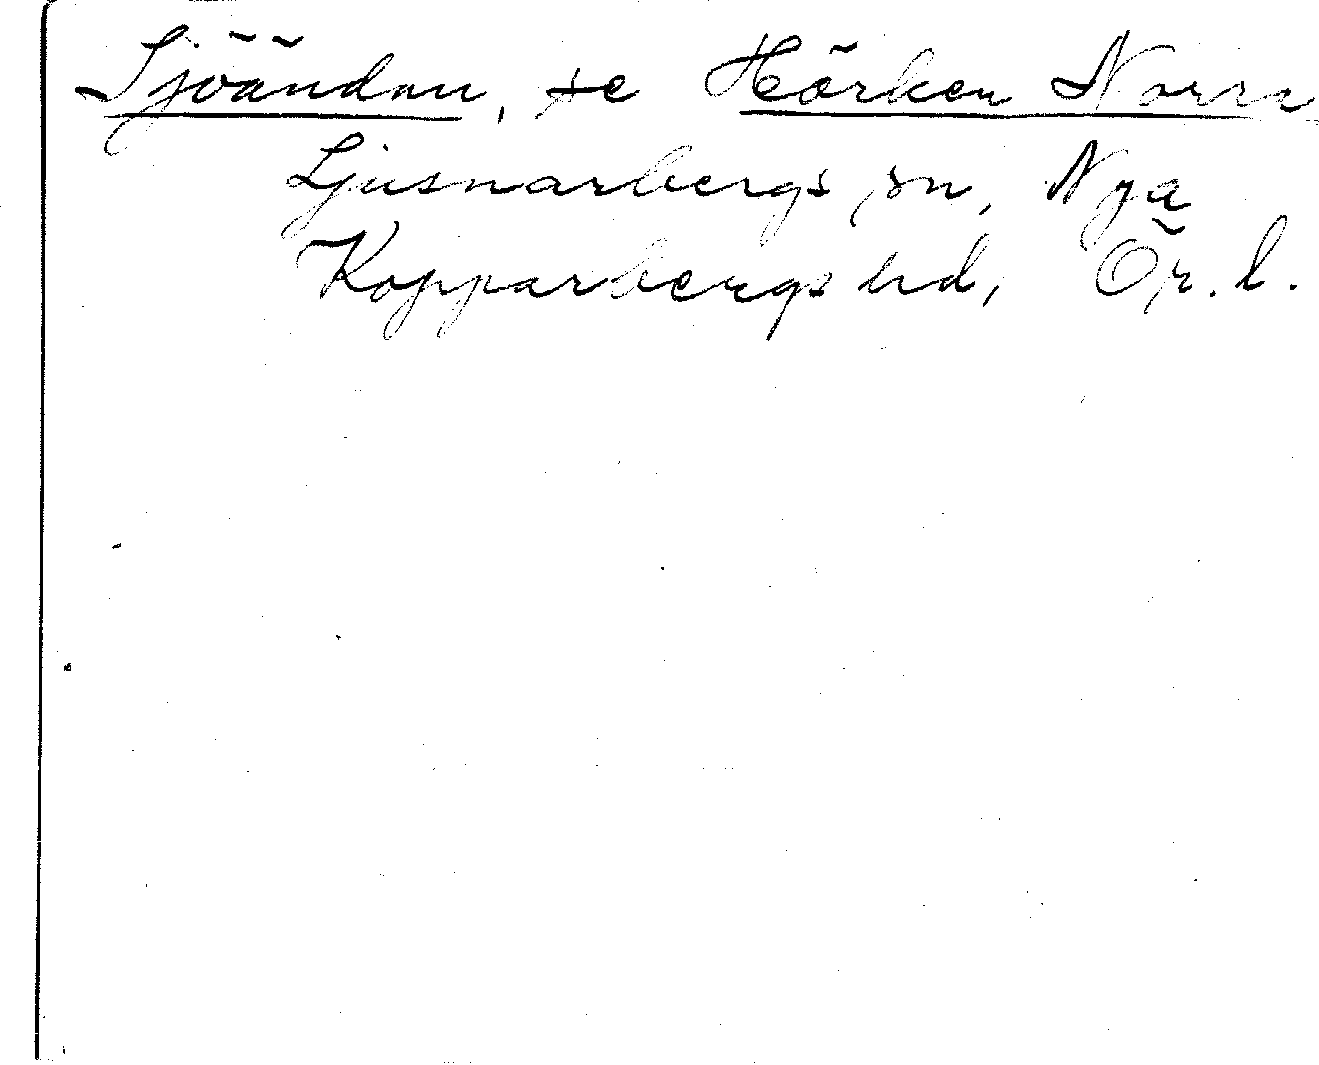 Sjöändan, se Hörken Norra
Ljusnarbergs sn, Nya
Kopparbergs hd, Ör. l.